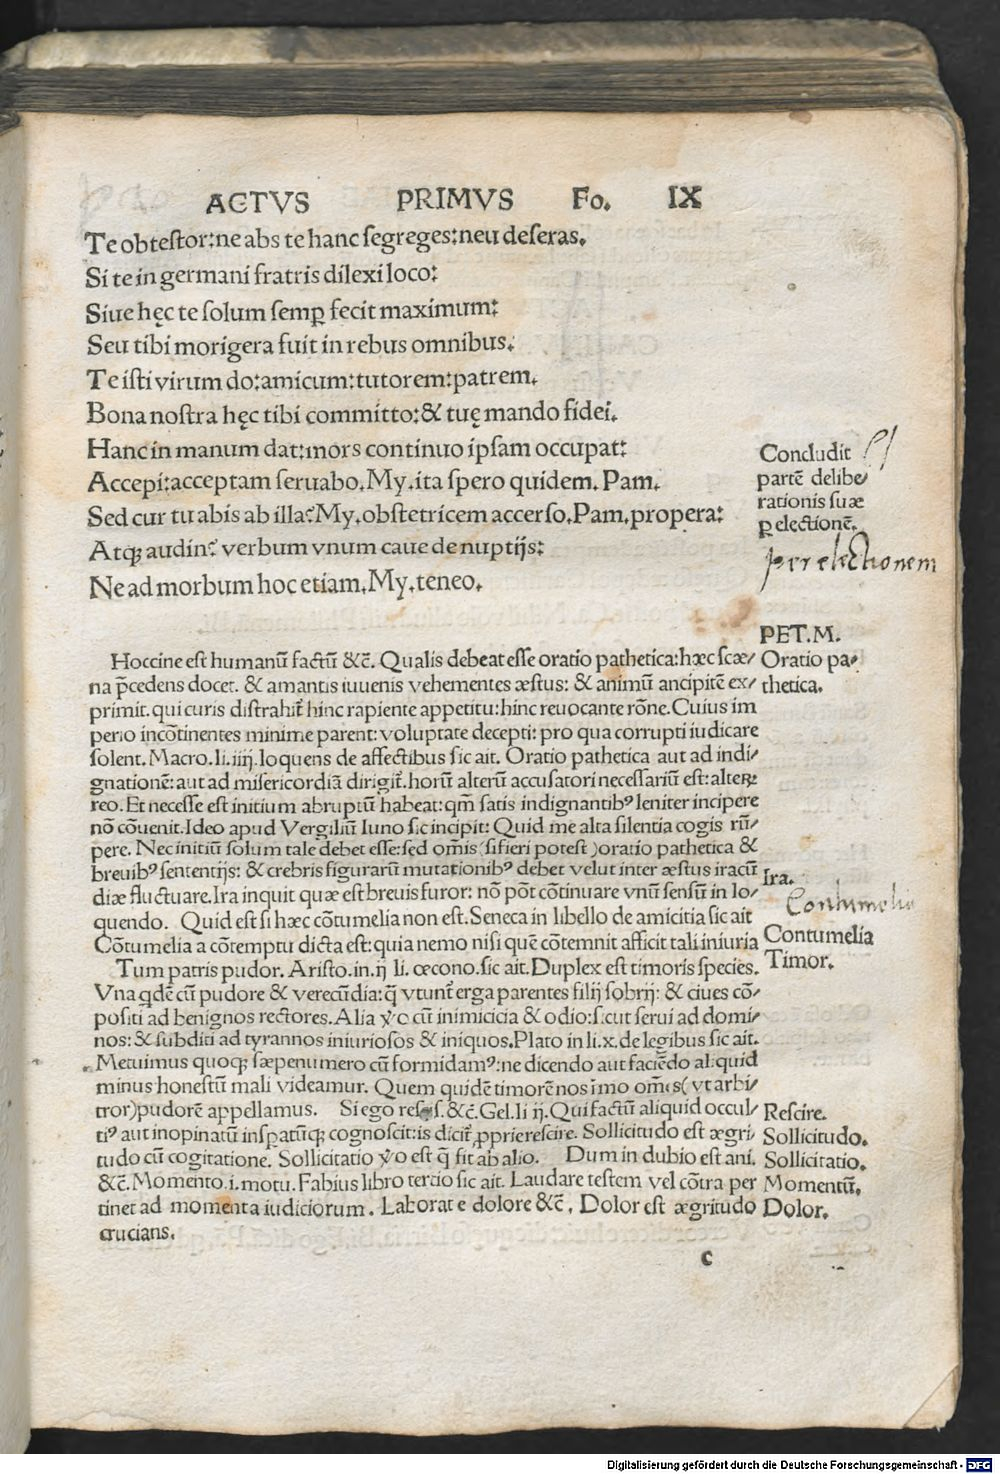 ACTVS PRIMVS Fo. IX
Te obtestor: ne abs te hanc segreges: neu deseras.
Si te in germani fratris dilexi loco:
Siue hęc te solum semꝑ fecit maximum:
Seu tibi morigera fuit in rebus omnibus.
Te isti virum do: amicum: tutorem: patrem.
Bona nostra hęc tibi committo: & tuę mando fidei.
Hanc in manum dat: mors continuo ipsam occupat:
Accepi: acceptam seruabo. My. ita spero quidem. Pam.
Sed cur tu abis ab illa? My. obstetricem accerso. Pam. propera:
Atqꝫ audin? verbum vnum caue de nuptijs:
Ne ad morbum hoc etiam. My. teneo.
Concludit
partē delibe/
rationis suæ
ꝑ electionē.
per electionem
PET. M.
Oratio pa/
thetica.
Hoccine est humanū factū &c̄. Qualis debeat esse oratio pathetica: hæc scæ/
na p̄cedens docet. & amantis iuuenis vehementes æstus: & animū ancipitē ex/
primit. qui curis distrahit̄ hinc rapiente appetitu: hinc reuocante rōne. Cuius im
perio incōtinentes minime parent: voluptate decepti: pro qua corrupti iudicare
solent. Macro. li. iiij. loquens de affectibus sic ait. Oratio pathetica aut ad indi/
gnationē: aut ad misericordiā dirigit̄. horū alterū accusatori necessariū est: alterꝝ
reo. Et necesse est initium abruptū habeat: qm̄ satis indignantibꝰ leniter incipere
nō cōuenit. Ideo apud Vergiliū Iuno sic incipit: Quid me alta silentia cogis rū/
pere. Nec initiū solum tale debet esse: sed om̄is (si fieri potest) oratio pathetica &
breuibꝰ sententijs: & crebris figurarū mutationibꝰ debet velut inter æstus iracū
diæ fluctuare. Ira inquit quæ est breuis furor: nō pōt cōtinuare vnū sensū in lo/
quendo. Quid est si hæc cōtumelia non est. Seneca in libello de amicitia sic ait
Cōtumelia a cōtemptu dicta est: quia nemo nisi quē cōtemnit afficit tali iniuria
Ira.
Contumelia
Contumelia
Timor.
Tum patris pudor. Aristo. in. ij li. œcono. sic ait. Duplex est timoris species.
Vna qdē cū pudore & verecūdia: q̄ vtunt̄ erga parentes filij sobrij: & ciues cō/
positi ad benignos rectores. Alia v̄o cū inimicicia & odio: sicut serui ad domi/
nos: & subditi ad tyrannos iniuriosos & iniquos. Plato in li. x. de legibus sic ait.
Metuimus quoqꝫ sæpenumero cū formidamꝰ: ne dicendo aut faciēdo aliquid
minus honestū mali videamur. Quem quidē timorē nos īmo om̄es (vt arbi/
tror) pudorē appellamus. Si ego &c̄. Gel. li ij. Qui factū aliquid occul/
tiꝰ aut inopinatū insꝑatūqꝫ cognoscit: is dicit̄ ꝓprie rescire. Sollicitudo est ægri/
tudo cū cogitatione. Sollicitatio v̄o est q̄ fit ab alio. Dum in dubio est ani.
&c̄. Momento. i. motu. Fabius libro tercio sic ait. Laudare testem vel cōtra per
tinet ad momenta iudiciorum. Laborat e dolore &c̄. Dolor est ægritudo
crucians.
Rescire.
Sollicitudo.
Sollicitatio.
Momentū.
Dolor.
c
Digitalisierung gefördert durch die Deutsche Forschungsgemeinschaft - DFG